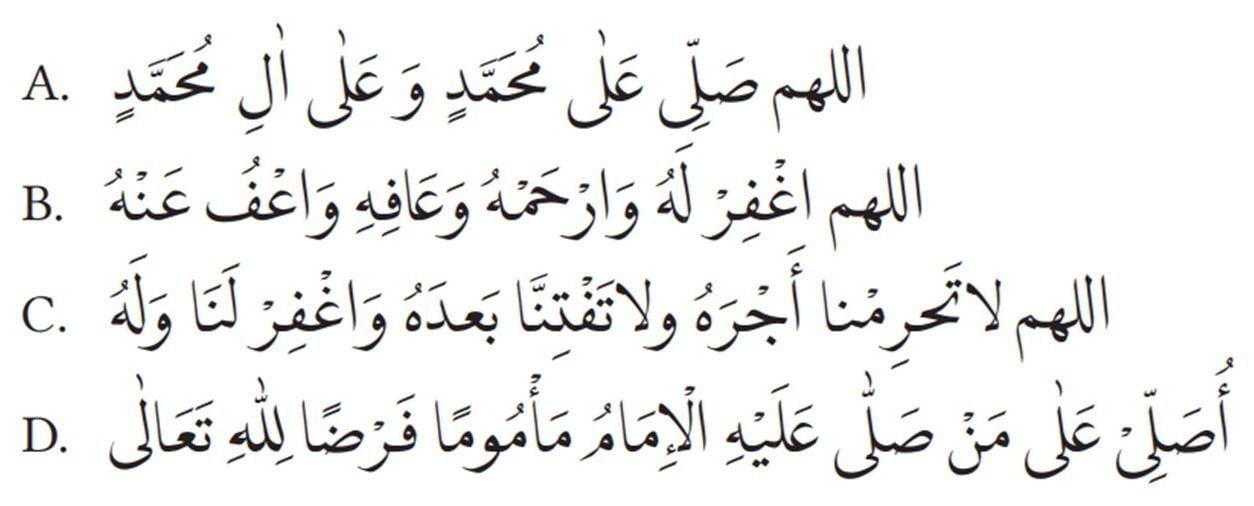 A. اللهم صَلِّى عَلٰى مُحَمَّدٍ وَ عَلٰى اٰلِ مُحَمَّدٍ
B. اللهم اغْفِرْ لَهُ وَارْحَمْهُ وَعَافِهِ وَاعْفُ عَنْهُ
C. اللهم لاتَحرِمْنا أَجْرَهُ ولاتَفْتِنَّا بَعدَهُ وَاغْفِرْ لَنَا وَلَهُ
D. أُصَلِّىْ عَلٰى مَنْ صَلّٰى عَلَيْهِ الْإِمَامُ مَأْمُومًا فَرْضًا لِلّٰهِ تَعَالٰى